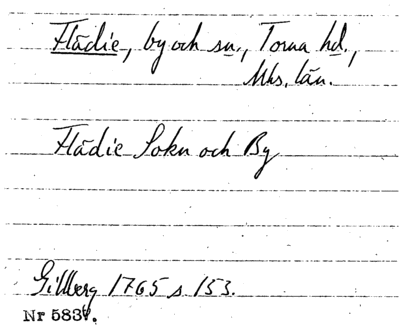 Flädie, by och sn., Torna hd.,
Mhs. län.
Flädie Sokn och By
Gillberg 1765 s 153.
Nr 5837.